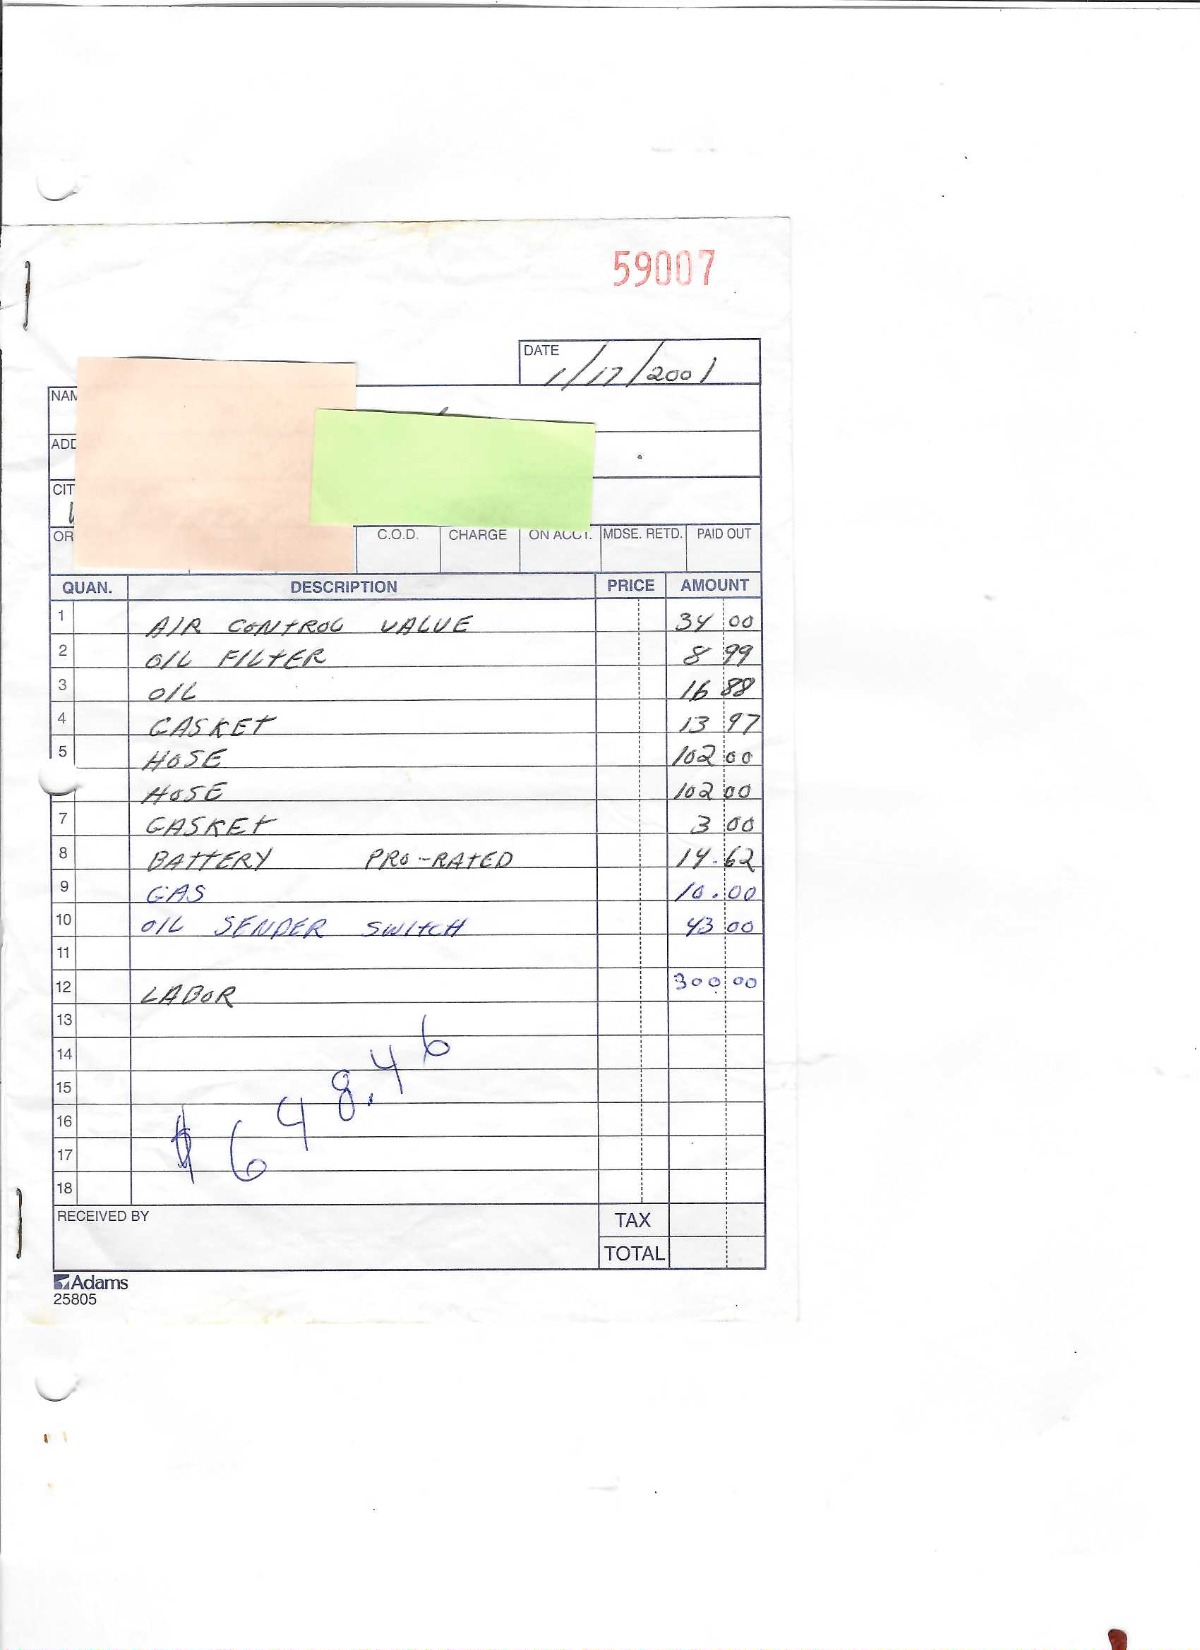 59007
DATE 1/17/2001
NAM
ADD
CIT
OR C.O.D. CHARGE ON ACCT. MDSE. RETD. PAID OUT
QUAN. DESCRIPTION PRICE AMOUNT
1 AIR CONTROL VALUE 34 00
2 OIL FILTER 8 99
3 OIL 16 88
4 GASKET 13 97
5 HOSE 102 00
HOSE 102 00
7 GASKET 3 00
8 BATTERY PRO-RATED 14.62
9 GAS 10.00
10 OIL SENDER SWITCH 43 00
11
12 LABOR 300.00
13
14
15
16
17
18
$648.46
RECEIVED BY TAX
TOTAL
Adams
25805